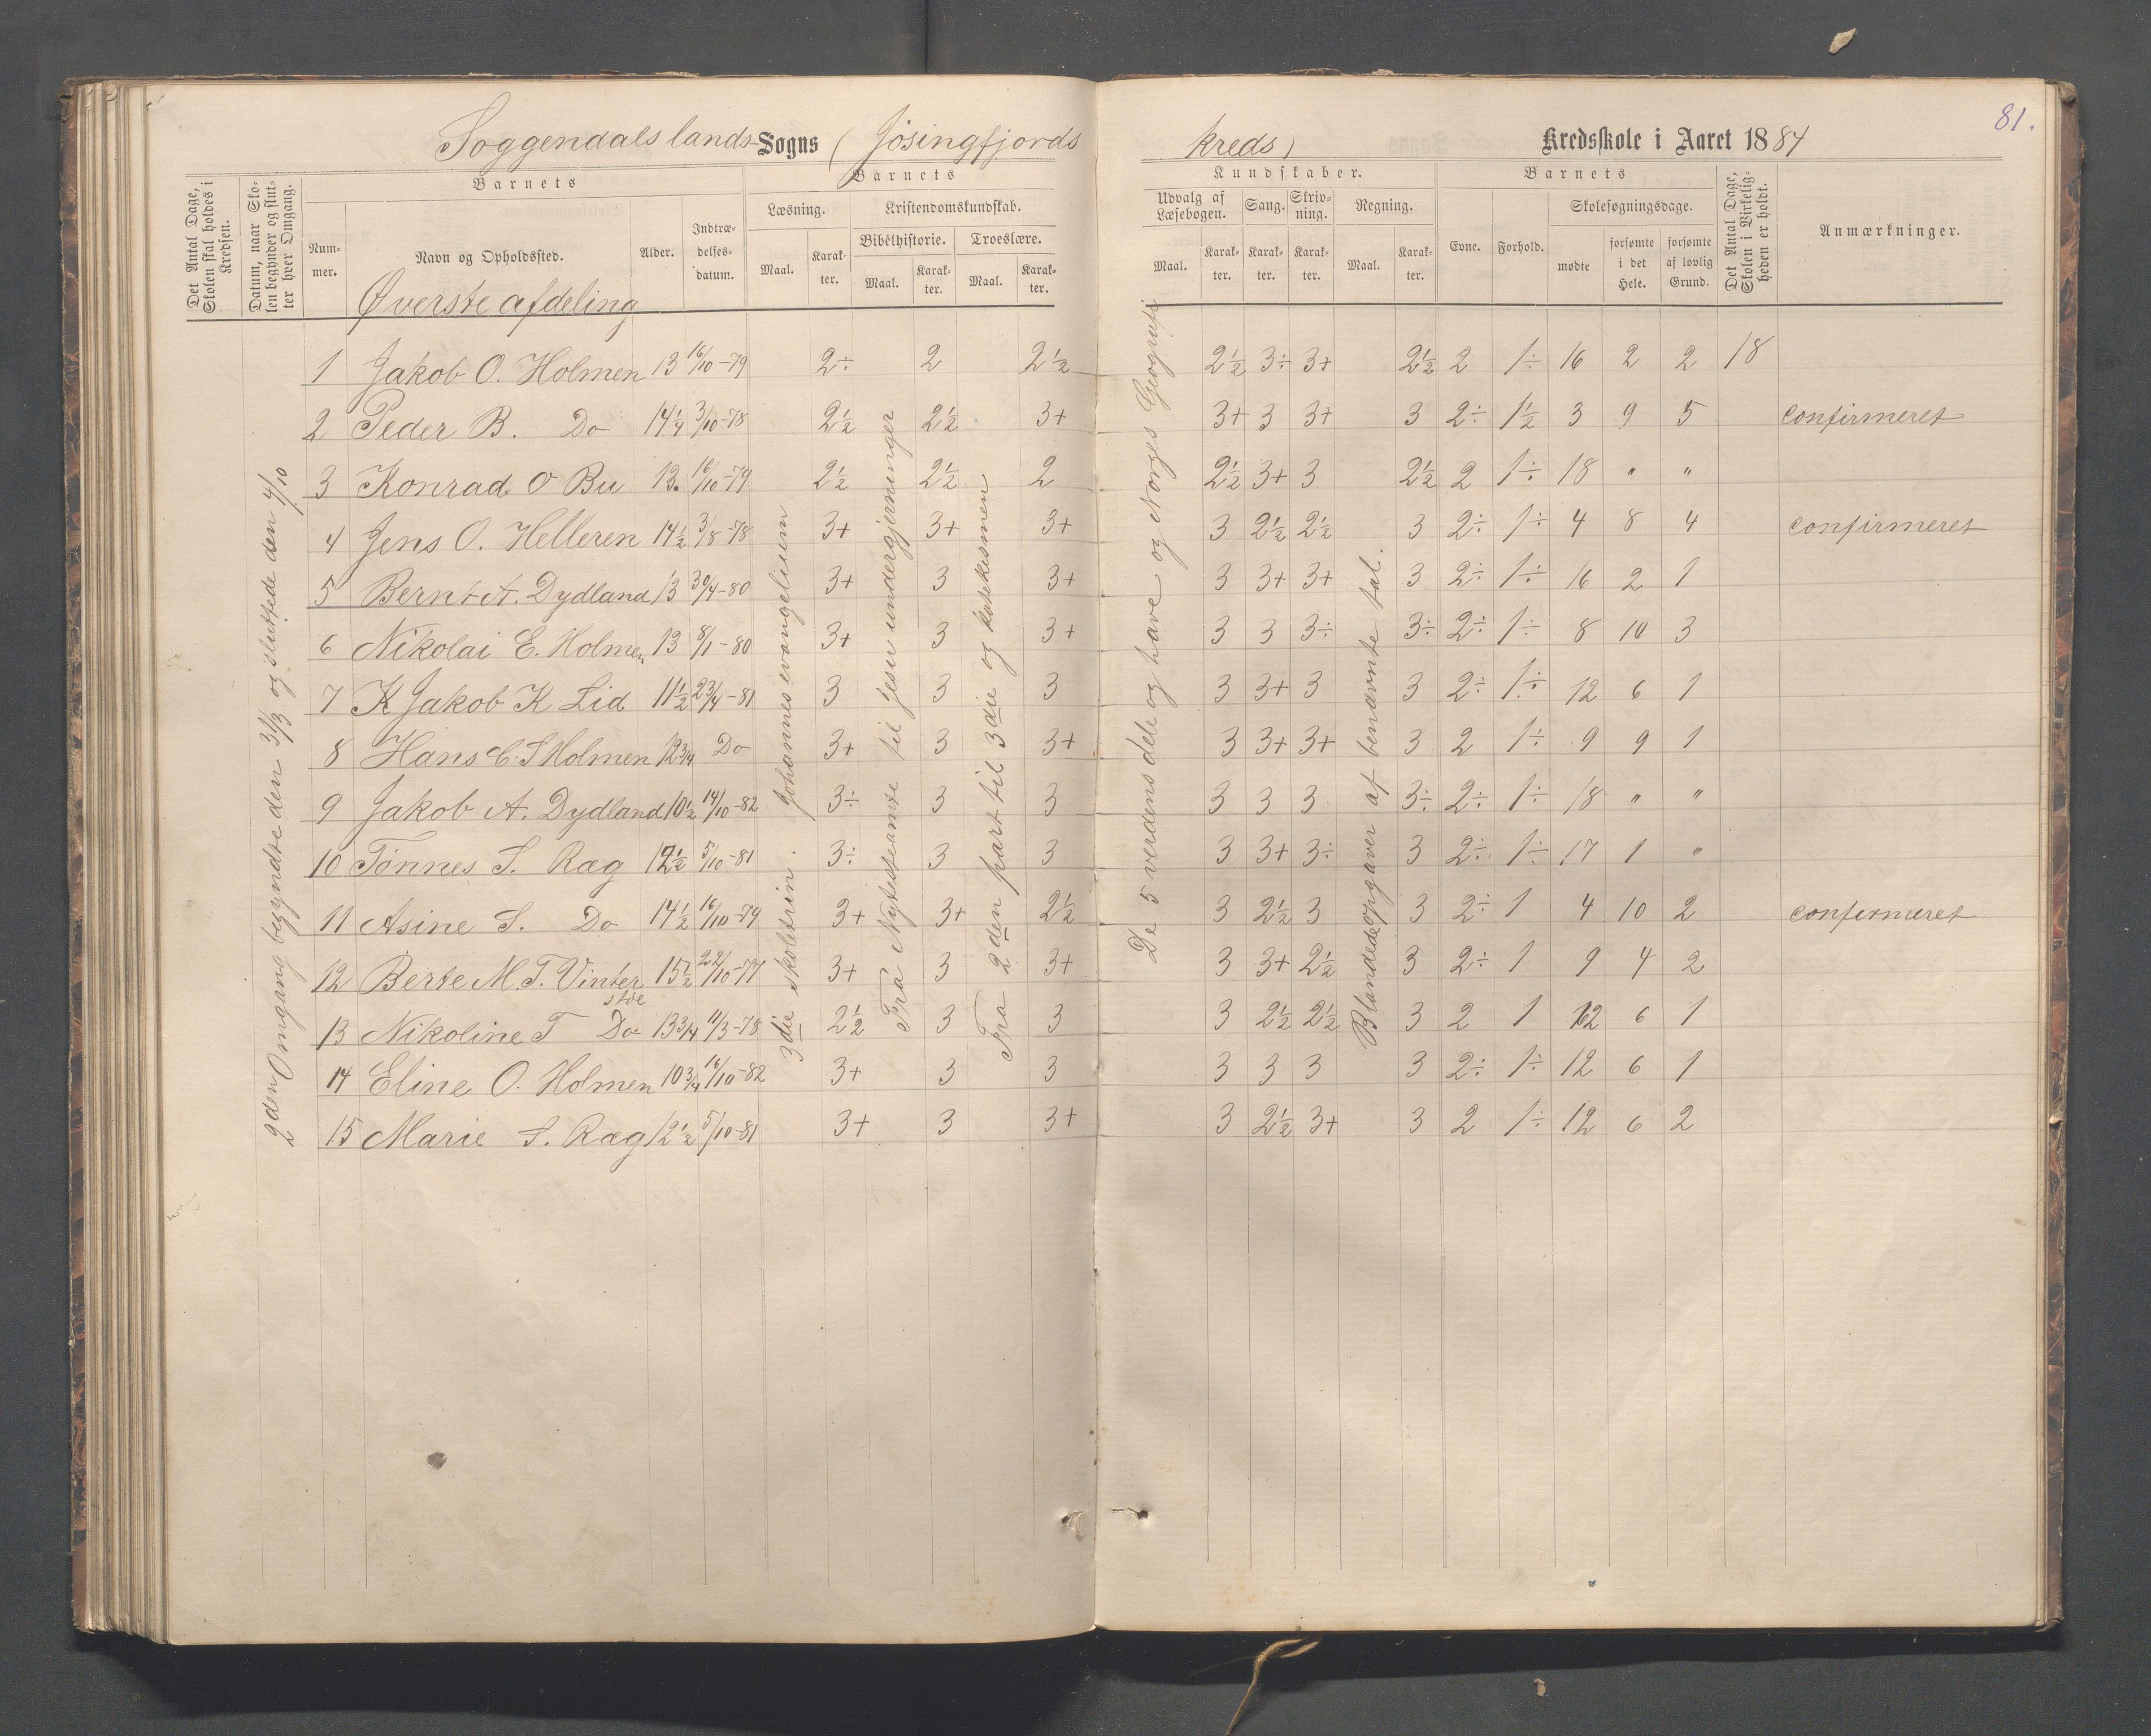 81.
Soggendals lands Sogns ( Jøsingfjords kreds) Kredsskole i Aaret 1884
Det Antal Dage, Skolen skal holdes i Kredsen.
Datum, naar Skolen begynder og slutter hver Omgang.
Barnets
Nummer.
Navn og Opholdssted.
Alder.
Indtrædelsesdatum.
Barnets
Læsning.
Maal.
Karakter.
Kristendomskundskab.
Bibelhistorie.
Maal.
Karakter.
Troeslære.
Maal.
Karakter.
Kundskaber.
Udvalg af Læsebogen.
Maal.
Karakter.
Sang.
Karakter.
Skrivning.
Karakter.
Regning.
Maal.
Karakter.
Barnets
Evne.
Forhold.
Skolesøgningsdage.
mødte
forsømte i det Hele.
forsømte af lovlig Grund.
Det Antal Dage, Skolen i Virkeligheden er holdt.
Anmærkninger.
Øverste afdeling
2den Omgang begyndte den 31/3 og sluttede den 4/10
3die skoletrin. Johannes evangelium
Fra Nytestamte til Jesu undergjerninger
Fra 2den part til 3die og katekismen
De 5 verdens dele og have og Norges Geografi
Blandede opgaver af benævnte tal.
1 Jakob O. Holmen 13 16/10-79 2÷ 2 2½ 2½ 3÷ 3+ 2½ 2 1÷ 16 2 2 18
2 Peder B. Do 14¼ 3/10-78 2½ 2½ 3+ 3+ 3 3+ 3 2÷ 1½ 3 9 5 confirmeret
3 Konrad O Bu 13. 16/10-79 2½ 2½ 2 2½ 3+ 3 2½ 2 1÷ 18 " "
4 Jens O. Helleren 14½ 3/8-78 3+ 3+ 3+ 3 2½ 2½ 3 2÷ 1÷ 4 8 4 confirmeret
5 Bernt A. Dydland 13 30/4-80 3+ 3 3+ 3 3+ 3+ 3 2÷ 1÷ 16 2 1
6 Nikolai E. Holmen 13 8/1-80 3+ 3 3+ 3 3 3÷ 3÷ 2÷ 1÷ 8 10 3
7 K Jakob K Lid 11½ 23/4-81 3 3 3 3 3+ 3 3 2÷ 1÷ 12 6 1
8 Hans C. S Holmen 12¾ Do 3+ 3 3+ 3 3+ 3+ 3 2 1÷ 9 9 1
9 Jakob A. Dydland 10½ 14/10-82 3÷ 3 3 3 3 3 3÷ 2÷ 1÷ 18 " "
10 Tönnes S. Ræg 12½ 5/10-81 3÷ 3 3 3 3+ 3÷ 3 2÷ 1÷ 17 1 "
11 Asine S. Do 14½ 16/10-79 3+ 3+ 2½ 3 2½ 3 3 2÷ 1 4 10 2 confirmeret
12 Berte M. T. Vinterstøe 15½ 22/10-77 3+ 3 3+ 3 3+ 2½ 3 2÷ 1 9 4 2
13 Nikoline T Do 13¾ 11/3-78 2½ 3 3 3 2½ 2½ 3 2 1 12 6 1
14 Eline O. Holmen 10¾ 16/10-82 3+ 3 3 3 3 3 3 2÷ 1÷ 12 6 1
15 Marie S. Ræg 12½ 5/10-81 3+ 3 3+ 3 2½ 3+ 3 2 1÷ 12 6 2